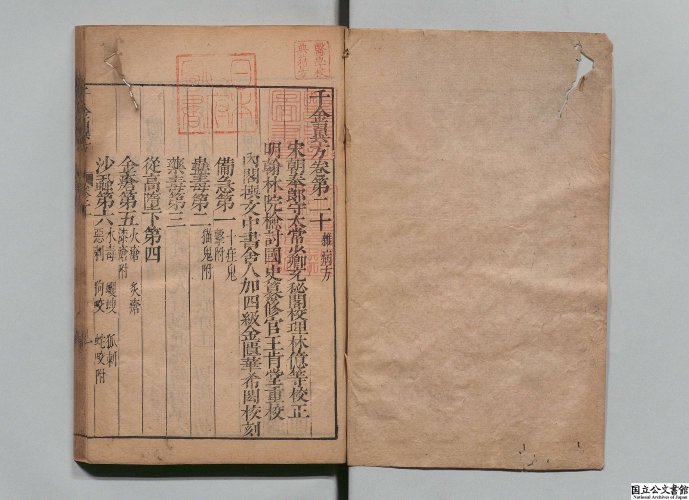 千金翼方卷第二十 雜病方
宋朝奉郎守太常少卿充秘閣校理林億等校正
明翰林院檢討國史纂修官王肯堂重校
內閣撰文中書舍人加四級金匱華希閎校刻
備急第一 十疰鬼擊附
蠱毒第二 猫鬼附
藥毒第三
從高墮下第四
金瘡第五 火瘡 灸瘡 漆瘡附
沙蝨第六 水毒 狐刺 惡刺 狗咬 蛇咬附
千金翼方
國立公文書館
National Archives of Japan